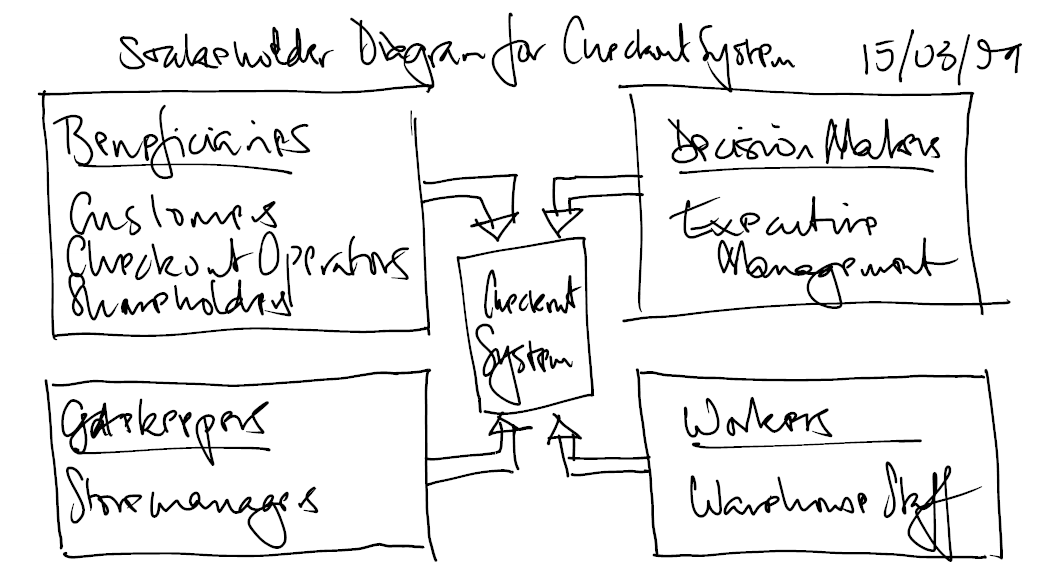 Stakeholder Diagram for Checkout System 15/03/99
Beneficiaries
Customers
Checkout Operators
Shareholders
Decision Makers
Executive
Management
Checkout
System
Gatekeepers
Store managers
Workers
Warehouse Staff